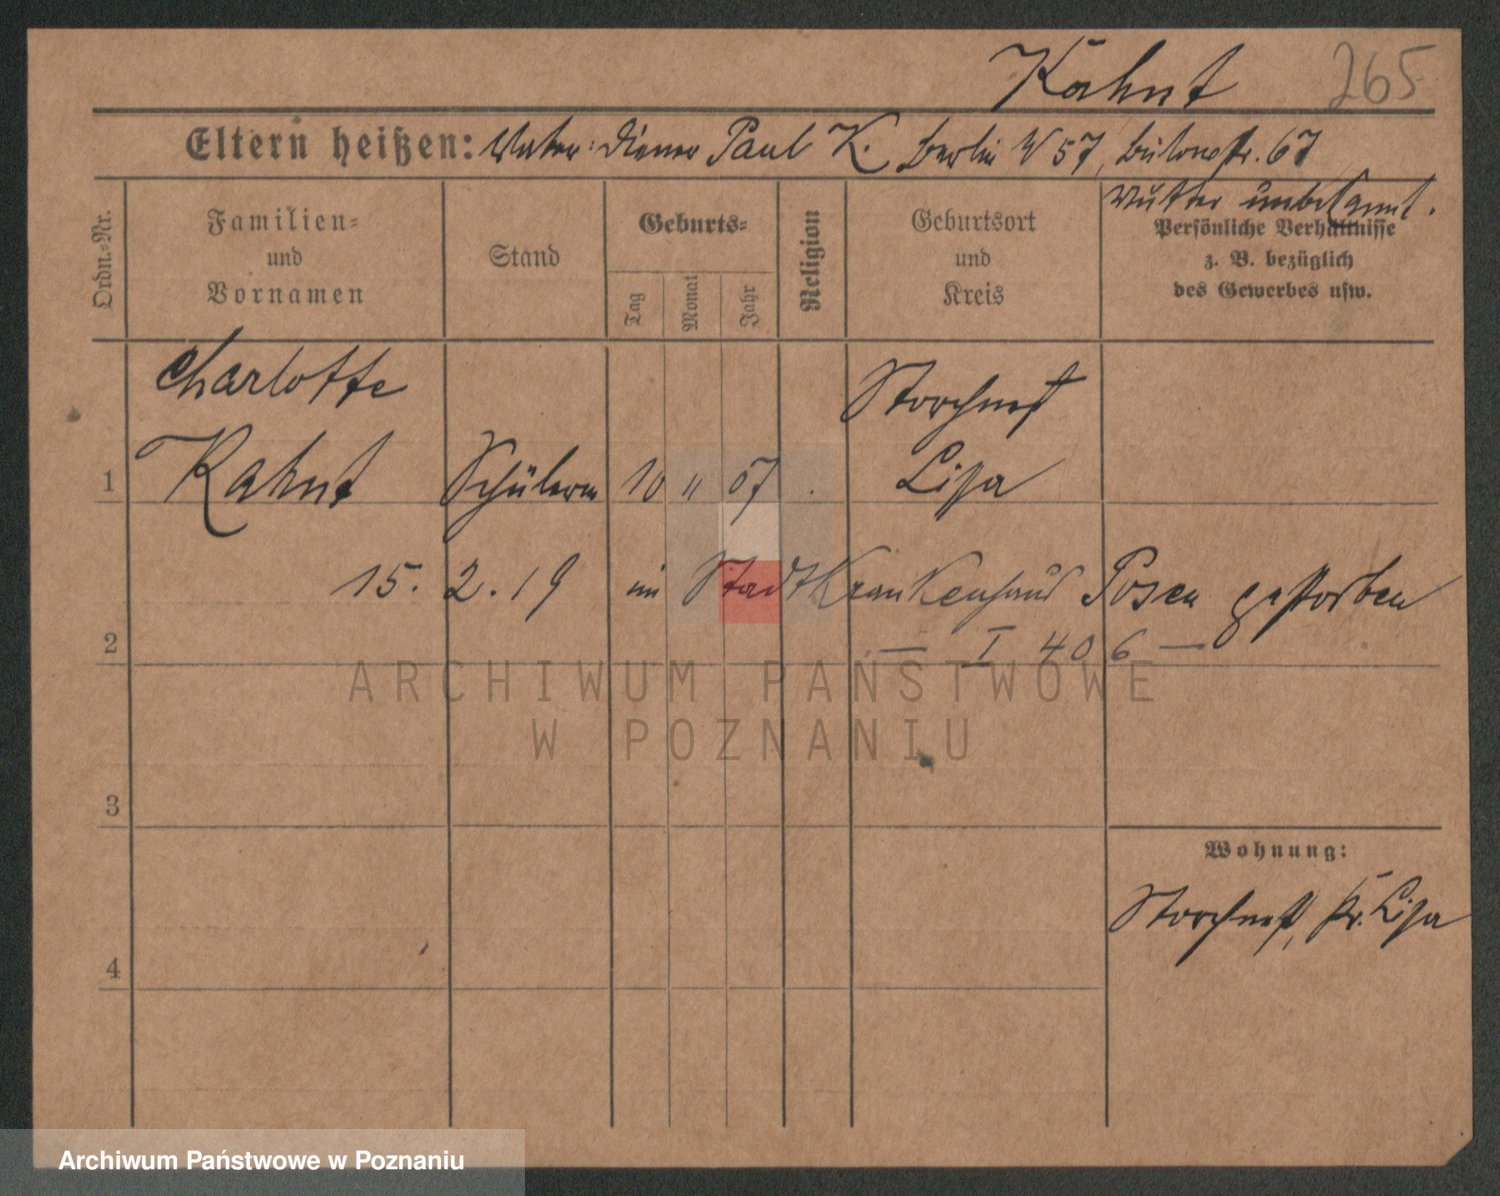 Kahnt 265
Eltern heißen: Vater: Diener Paul K. Berlin W 57, Bülowstr. 67
Mutter unbekannt.
Ordn.-Nr.
Familien-
und
Vornamen
Stand
Geburts-
Tag
Monat
Jahr
Religion
Geburtsort
und
Kreis
Persönliche Verhältnisse
z. B. bezüglich
des Gewerbes usw.
Charlotte
Storchnest
1 Kahnt Schülerin 10 11 07 Lissa
15. 2. 19 im Stadtkrankenhaus Posen gestorben
— I 406 —
2
ARCHIWUM PAŃSTWOWE
W POZNANIU
3
Wohnung:
Storchnest, Kr. Lissa
4
Archiwum Państwowe w Poznaniu